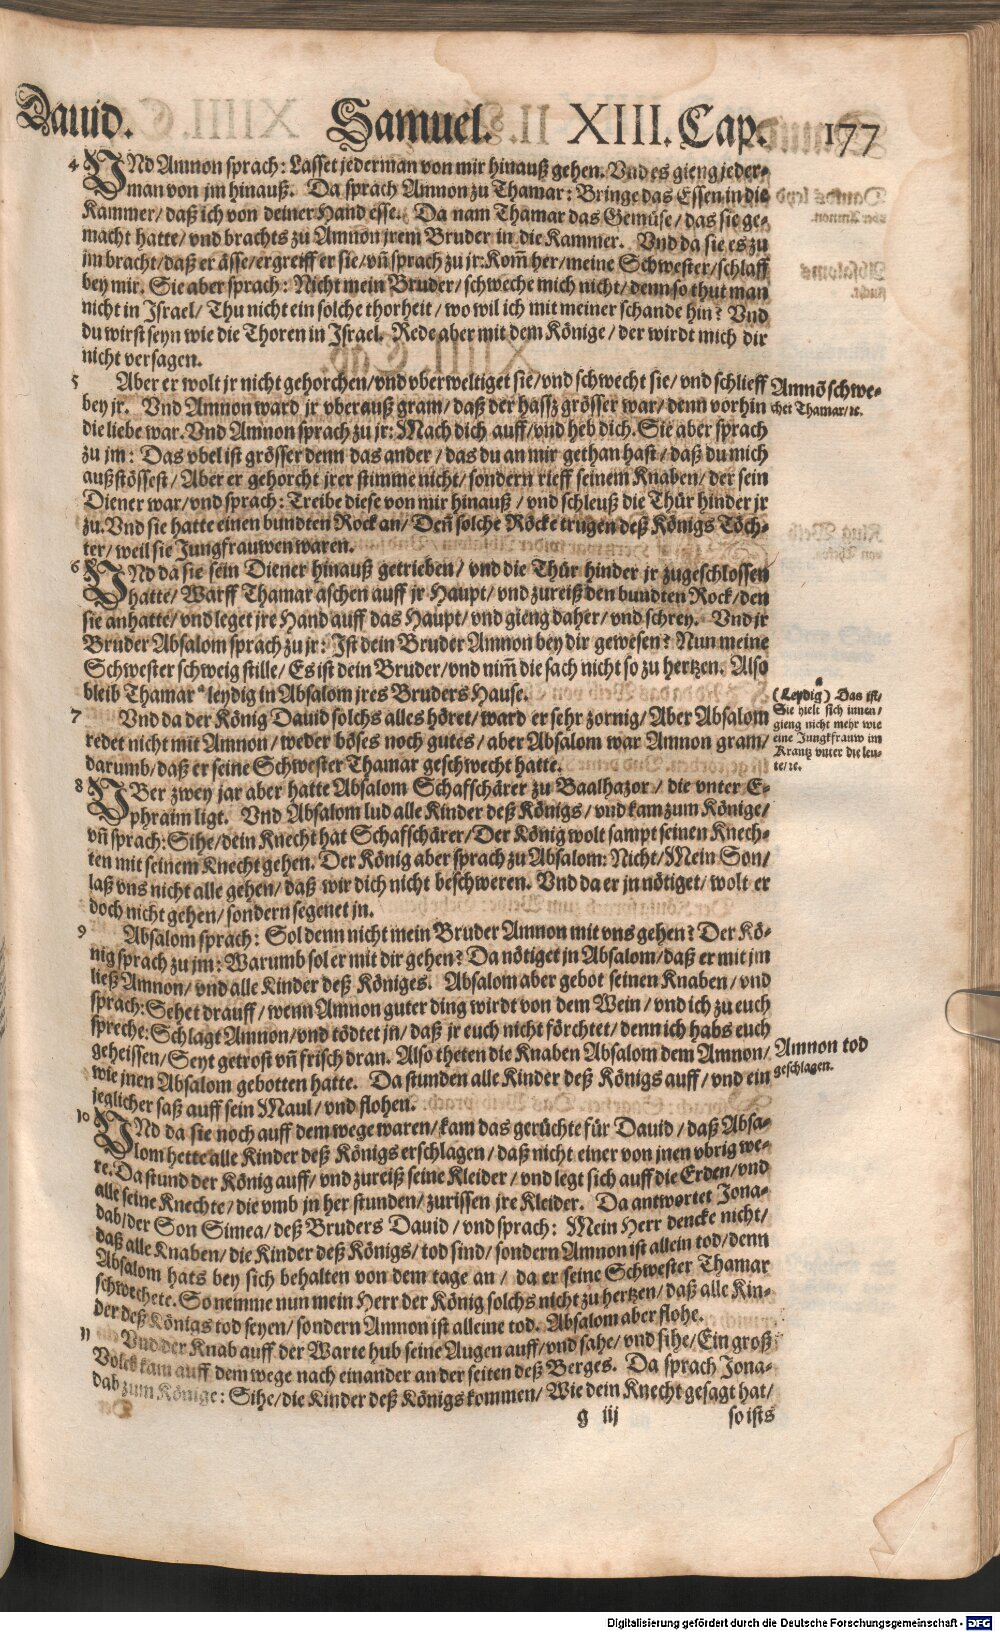 Dauid. Samuel. XIII. Cap. 177
4 VNd Amnon sprach: Lasset jederman von mir hinauß gehen. Vnd es gieng jeder-
man von jm hinauß. Da sprach Amnon zu Thamar: Bringe das Essen in die
Kammer/ daß ich von deiner Hand esse. Da nam Thamar das Gemüse/ das sie ge-
macht hatte/ vnd brachts zu Amnon jrem Bruder in die Kammer. Vnd da sie es zu
jm bracht/ daß er ässe/ ergreiff er sie/ vñ sprach zu jr: Kom̃ her/ meine Schwester/ schlaff
bey mir. Sie aber sprach: Nicht mein Bruder/ schweche mich nicht/ denn so thut man
nicht in Israel/ Thu nicht ein solche thorheit/ wo wil ich mit meiner schande hin? Vnd
du wirst seyn wie die Thoren in Israel. Rede aber mit dem Könige/ der wirdt mich dir
nicht versagen.
5 Aber er wolt jr nicht gehorchen/ vnd vberweltiget sie/ vnd schwecht sie/ vnd schlieff
bey jr. Vnd Amnon ward jr vberauß gram/ daß der hassz grösser war/ denn vorhin
die liebe war. Vnd Amnon sprach zu jr: Mach dich auff/ vnd heb dich. Sie aber sprach
zu jm: Das vbel ist grösser denn das ander/ das du an mir gethan hast/ daß du mich
außstössest/ Aber er gehorcht jrer stimme nicht/ sondern rieff seinem Knaben/ der sein
Diener war/ vnd sprach: Treibe diese von mir hinauß/ vnd schleuß die Thür hinder jr
zu. Vnd sie hatte einen bundten Rock an/ Deñ solche Röcke trugen deß Königs Töch-
ter/ weil sie Jungfrauwen waren.
Amnõ schwe-
chet Thamar/ ꝛc.
6 VNd da sie sein Diener hinauß getrieben/ vnd die Thür hinder jr zugeschlossen
hatte/ Warff Thamar aschen auff jr Haupt/ vnd zureiß den bundten Rock/ den
sie anhatte/ vnd leget jre Hand auff das Haupt/ vnd gieng daher/ vnd schrey. Vnd jr
Bruder Absalom sprach zu jr: Ist dein Bruder Amnon bey dir gewesen? Nun meine
Schwester schweig stille/ Es ist dein Bruder/ vnd nim̃ die sach nicht so zu hertzen. Also
bleib Thamar ᵃ leydig in Absalom jres Bruders Hause.
a
(Leydig) Das ist/
Sie hielt sich innen/
gieng nicht mehr wie
eine Jungkfrauw im
Krantz vnter die leu-
te/ ꝛc.
7 Vnd da der König Dauid solchs alles höret/ ward er sehr zornig/ Aber Absalom
redet nicht mit Amnon/ weder böses noch gutes/ aber Absalom war Amnon gram/
darumb/ daß er seine Schwester Thamar geschwecht hatte.
8 VBer zwey jar aber hatte Absalom Schafschärer zu Baalhazor/ die vnter E-
phraim ligt. Vnd Absalom lud alle Kinder deß Königs/ vnd kam zum Könige/
vñ sprach: Sihe/ dein Knecht hat Schafschärer/ Der König wolt sampt seinen Knech-
ten mit seinem Knecht gehen. Der König aber sprach zu Absalom: Nicht/ Mein Son/
laß vns nicht alle gehen/ daß wir dich nicht beschweren. Vnd da er jn nötiget/ wolt er
doch nicht gehen/ sondern segenet jn.
9 Absalom sprach: Sol denn nicht mein Bruder Amnon mit vns gehen? Der Kö-
nig sprach zu jm: Warumb sol er mit dir gehen? Da nötiget jn Absalom/ daß er mit jm
ließ Amnon/ vnd alle Kinder deß Königes. Absalom aber gebot seinen Knaben/ vnd
sprach: Sehet drauff/ wenn Amnon guter ding wirdt von dem Wein/ vnd ich zu euch
spreche: Schlagt Amnon/ vnd tödtet jn/ daß jr euch nicht förchtet/ denn ich habs euch
geheissen/ Seyt getrost vñ frisch dran. Also theten die Knaben Absalom dem Amnon/
wie jnen Absalom gebotten hatte. Da stunden alle Kinder deß Königs auff/ vnd ein
jeglicher saß auff sein Maul/ vnd flohen.
Amnon tod
geschlagen.
10 VNd da sie noch auff dem wege waren/ kam das gerüchte für Dauid/ daß Absa-
lom hette alle Kinder deß Königs erschlagen/ daß nicht einer von jnen vbrig we-
re. Da stund der König auff/ vnd zureiß seine Kleider/ vnd legt sich auff die Erden/ vnd
alle seine Knechte/ die vmb jn her stunden/ zurissen jre Kleider. Da antwortet Jona-
dab/ der Son Simea/ deß Bruders Dauid/ vnd sprach: Mein Herr dencke nicht/
daß alle Knaben/ die Kinder deß Königs/ tod sind/ sondern Amnon ist allein tod/ denn
Absalom hats bey sich behalten von dem tage an/ da er seine Schwester Thamar
schwechete. So nemme nun mein Herr der König solchs nicht zu hertzen/ daß alle Kin-
der deß Königs tod seyen/ sondern Amnon ist alleine tod. Absalom aber flohe.
11 Vnd der Knab auff der Warte hub seine Augen auff/ vnd sahe/ vnd sihe/ Ein groß
Volck kam auff dem wege nach einander an der seiten deß Berges. Da sprach Jona-
dab zum Könige: Sihe/ die Kinder deß Königs kommen/ Wie dein Knecht gesagt hat/
g iij so ists
Digitalisierung gefördert durch die Deutsche Forschungsgemeinschaft - DFG